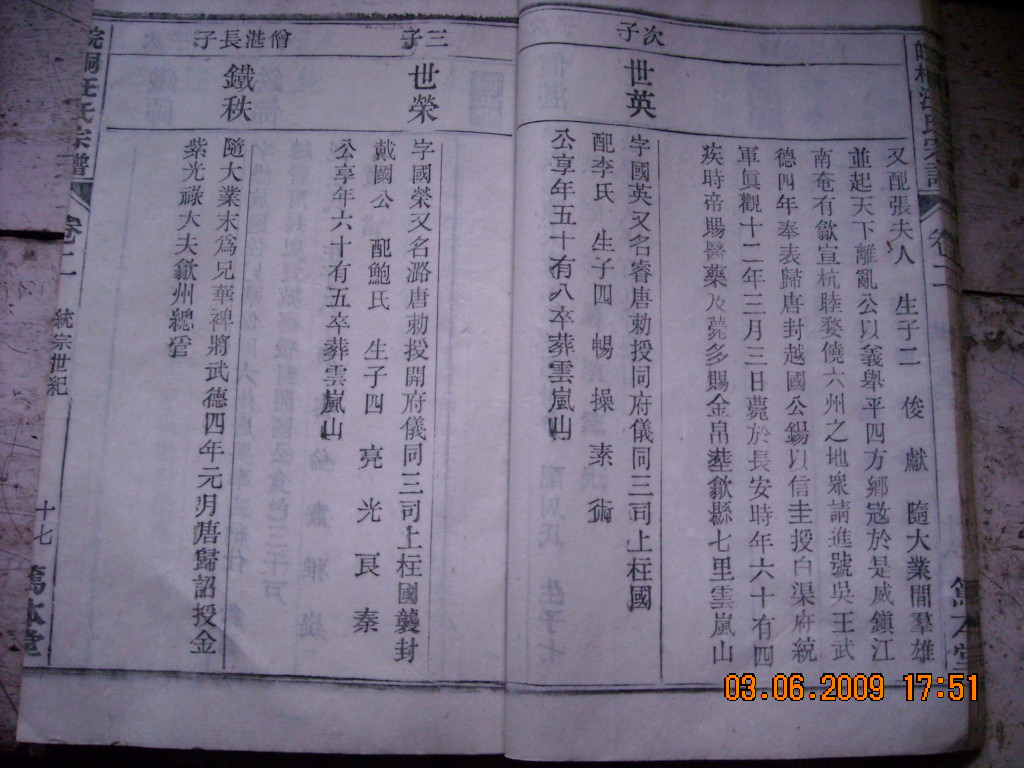 又配張夫人 生子二 俊 獻 隨大業間羣雄
並起天下離亂公以義舉平四方鄉寇於是威鎮江
南奄有歙宣杭睦婺饒六州之地衆請進號吳王武
德四年奉表歸唐封越國公錫以信圭授白渠府統
軍貞觀十二年三月三日薨於長安時年六十有四
疾時帝賜醫藥及薨多賜金帛塟歙縣七里雲嵐山
次子
世英
字國英又名睿唐勅授同府儀同三司上柱國
配李氏 生子四 暢 操 素 術
公享年五十有八卒葬雲嵐山
三子
世榮
字國榮又名潞唐勅授開府儀同三司上柱國襲封
戴國公 配鮑氏 生子四 亮 光 良 秦
公享年六十有五卒葬雲嵐山
僧湛長子
鐵秩
隨大業末爲兄華裨將武德四年元月唐歸詔授金
紫光祿大夫歙州總管
皖桐汪氏宗譜 卷二 統宗世紀 十七 篤本堂
03.06.2009 17:51